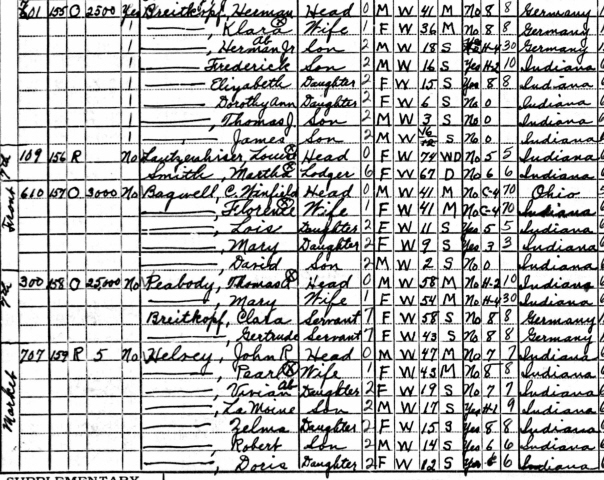 601 155 O 2500 Yes Breitkopf, Herman Head 0 M W 41 M No 8 8 Germany
1 ———, Klara Ⓧ Wife 1 F W 36 M No 8 8 Germany
1 ———, Herman Jr Ab Son 2 M W 18 S H-4 30 Germany
1 ——— Frederick Son 2 M W 16 S Yes H-2 10 Indiana
1 ——— Elizabeth Daughter 2 F W 15 S Yes 8 8 Indiana
1 ——— Dorothy Ann Daughter 2 F W 6 S No 0 Indiana
1 ———, Thomas J. Son 2 M W 3 S No 0 Indiana
1 ———, James Son 2 M W S No 0 Indiana
109 156 R No Louise Ⓧ Head 0 F W 74 WD No 5 5 Indiana
Smith, Martha E Lodger 6 F W 67 D No 6 6 Indiana
610 157 O 3000 No Bagwell, C. Winfield Head 0 M W 41 M No C-4 70 Ohio
———, Florence Ⓧ Wife 1 F W 41 M No C-4 70 Indiana
———, Lois Daughter 2 F W 11 S Yes 5 5 Indiana
———, Mary Daughter 2 F W 9 S Yes 3 3 Indiana
———, David Son 2 M W 2 S No 0 Indiana
300 158 O 25,000 No Peabody, Thomas Ⓧ Head 0 M W 58 M No H-2 10 Indiana
———, Mary Wife 1 F W 54 M No H-4 30 Indiana
Breitkopf, Clara Servant 7 F W 58 S No 8 8 Germany
———, Gertrude Servant 7 F W 43 S No 8 8 Germany
707 159 R 5 No Helvey, John R. Head 0 M W 47 M No 7 7 Indiana
———, Pearl Ⓧ Wife 1 F W 43 M No 8 8 Indiana
———, Vivian Ab Daughter 2 F W 19 S No 7 7 Indiana
———, La Moine Son 2 M W 17 S Yes H-1 9 Indiana
———, Zelma Daughter 2 F W 15 S Yes 8 8 Indiana
———, Robert Son 2 M W 14 S Yes 6 6 Indiana
———, Doris Daughter 2 F W 12 S Yes 6 Indiana
Front
Market
SUPPLEMENTARY